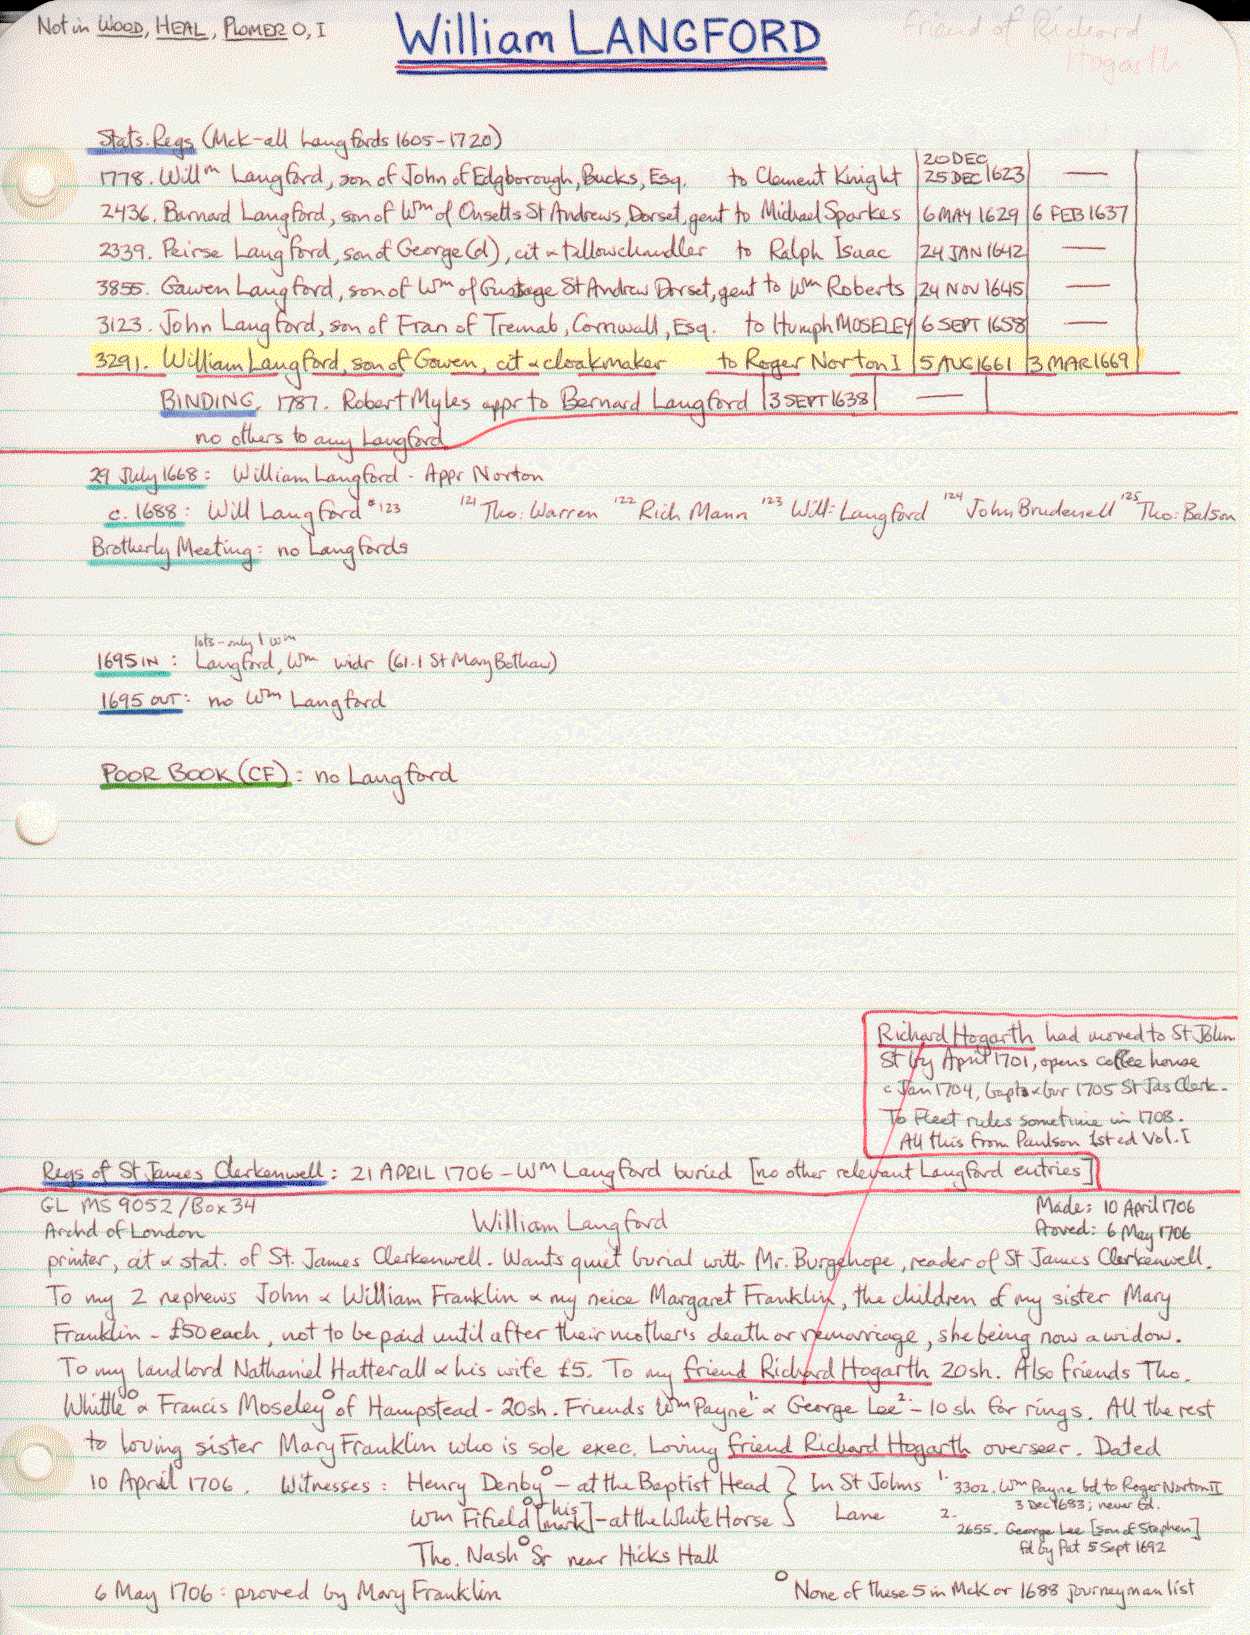 Not in WOOD, HEAL, PLOMER O, I
William LANGFORD
Friend of Richard
Hogarth
Stats. Regs (McK-all Langfords 1605-1720)
1778. Willm Langford, son of John of Edgborough, Bucks, Esq. to Clement Knight 20 DEC 25 DEC 1623 —
2436. Barnard Langford, son of Wm of Onsetts St Andrews, Dorset, gent to Michael Sparkes 6 MAY 1629 6 FEB 1637
2339. Peirse Langford, son of George (d), cit & tallowchandler to Ralph Isaac 24 JAN 1642 —
3855. Gawen Langford, son of Wm of Gussage St Andrew Dorset, gent to Wm Roberts 24 NOV 1645 —
3123. John Langford, son of Fran of Tremab, Cornwall, Esq. to Humph MOSELEY 6 SEPT 1658 —
3291. William Langford, son of Gowen, cit & cloakmaker to Roger Norton I 5 AUG 1661 3 MAR 1669
BINDING, 1787. Robert Myles appr to Bernard Langford 3 SEPT 1638 —
no others to any Langford
29 July 1668: William Langford - Appr Norton
c. 1688: Will Langford #123 121 Tho: Warren 122 Rich Mann 123 Will: Langford 124 John Brudenell 125 Tho: Balson
Brotherly Meeting: no Langfords
lots - only 1 Wm
1695 IN: Langford, Wm widr (61.1 St Mary Bothaw)
1695 OUT: no Wm Langford
POOR BOOK (CF): no Langford
Richard Hogarth had moved to St John
St by April 1701, opens coffee house
c Jan 1704, bapts & bur 1705 St Jas Clerk-
To Fleet rules sometime in 1708.
All this from Paulson 1st ed Vol. I
Regs of St James Clerkenwell: 21 APRIL 1706 - Wm Langford buried [no other relevant Langford entries]
GL MS 9052/Box 34
Archd of London
William Langford
Made: 10 April 1706
Proved: 6 May 1706
printer, cit & stat. of St. James Clerkenwell. Wants quiet burial with Mr. Burgehope, reader of St James Clerkenwell.
To my 2 nephews John & William Franklin & my neice Margaret Franklin, the children of my sister Mary
Franklin - £50 each, not to be paid until after their mother's death or remarriage, she being now a widow.
To my landlord Nathaniel Hatterall & his wife £5. To my friend Richard Hogarth 20sh. Also friends Tho.
Whittle° & Francis Moseley° of Hampstead - 20sh. Friends Wm Payne 1. & George Lee 2. - 10 sh for rings. All the rest
to loving sister Mary Franklin who is sole exec. Loving friend Richard Hogarth overseer. Dated
10 April 1706. Witnesses: Henry Denby° - at the Baptist Head } In St Johns
Wm Fifield° [his mark] - at the White Horse } Lane
Tho. Nash° Sr near Hicks Hall
1. 3302. Wm Payne bd to Roger Norton II
3 Dec 1683; never fd.
2.
2655. George Lee [son of Stephen]
fd by Pat 5 Sept 1692
6 May 1706: proved by Mary Franklin
° None of these 5 in McK or 1688 journeyman list